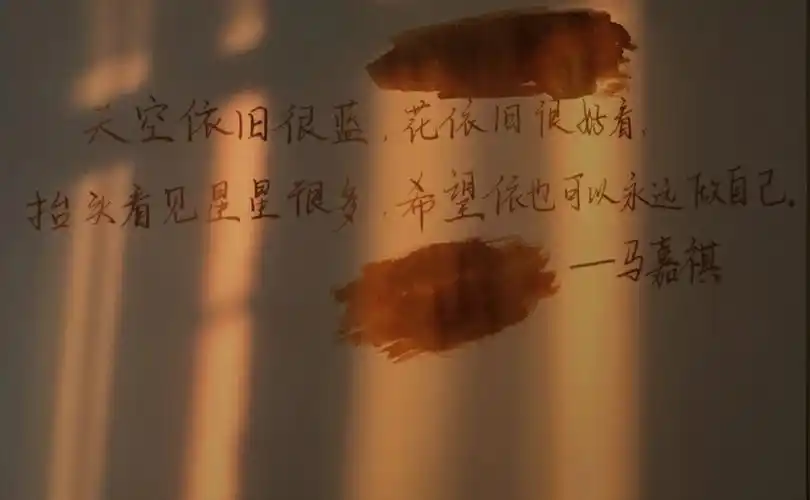 天空依旧很蓝，花依旧很好看，
抬头看见星星很多，希望依也可以永远做自己。
——马嘉祺